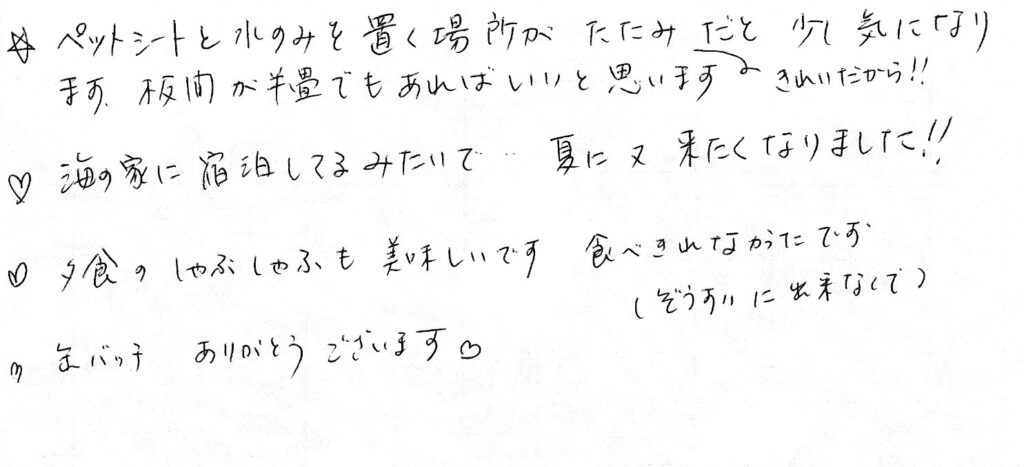 ☆ ペットシートと水のみを置く場所がたたみだと少し気になり
ます、板間が半畳でもあればいいと思います〜きれいだから!!
♡ 海の家に宿泊してるみたいで‥夏に又来たくなりました!!
♡ 夕食のしゃぶしゃぶも美味しいです 食べきれなかったです
(ぞうすいに出来なくて)
♡ 缶バッチ ありがとうございます♡